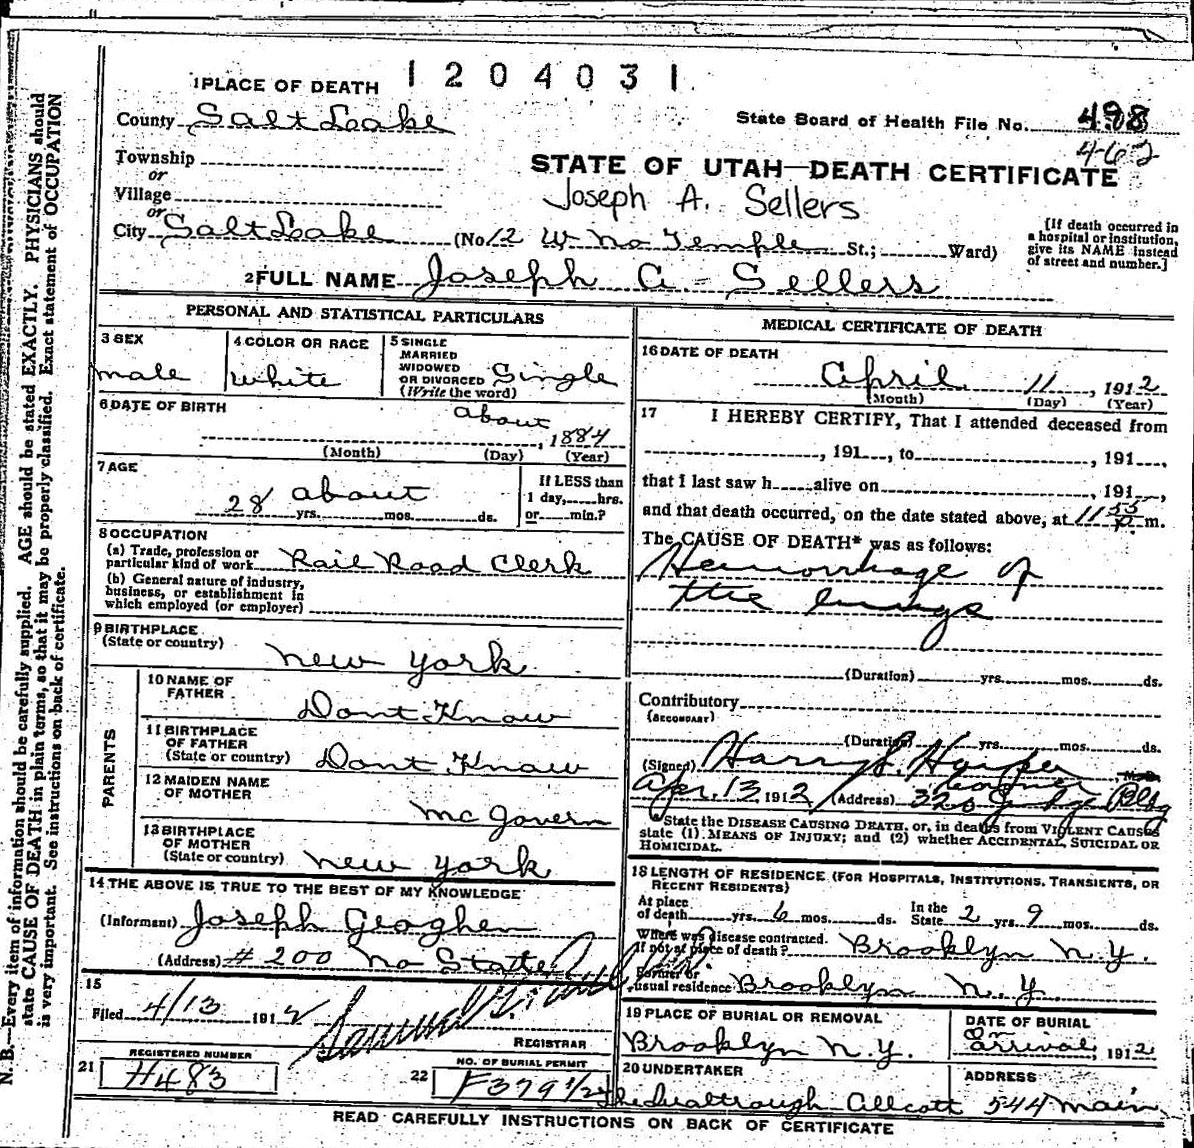 1 PLACE OF DEATH 1204031
County Salt Lake
State Board of Health File No. 498
462
Township
or
Village
or
STATE OF UTAH—DEATH CERTIFICATE
Joseph A. Sellers
City Salt Lake (No 12 W. No Temple St.; Ward)
[If death occurred in
a hospital or institution,
give its NAME instead
of street and number.]
2 FULL NAME Joseph A. Sellers
PERSONAL AND STATISTICAL PARTICULARS
3 SEX
male
4 COLOR OR RACE
white
5 SINGLE
MARRIED
WIDOWED
OR DIVORCED
(Write the word)
Single
6 DATE OF BIRTH
about
, 1884
(Month) (Day) (Year)
7 AGE
28 about
yrs. mos. ds.
If LESS than
1 day, hrs.
or min.?
8 OCCUPATION
(a) Trade, profession or
particular kind of work Rail Road Clerk
(b) General nature of industry,
business, or establishment in
which employed (or employer)
9 BIRTHPLACE
(State or country)
New York
PARENTS
10 NAME OF
FATHER
Dont Know
11 BIRTHPLACE
OF FATHER
(State or country)
Dont Know
12 MAIDEN NAME
OF MOTHER
McGovern
13 BIRTHPLACE
OF MOTHER
(State or country)
New York
14 THE ABOVE IS TRUE TO THE BEST OF MY KNOWLEDGE
(Informant) Joseph Geoghen
(Address) # 200 No State
15
Filed 4/13 1912
REGISTRAR
21
REGISTERED NUMBER
H483
22
NO. OF BURIAL PERMIT
F379 1/2
MEDICAL CERTIFICATE OF DEATH
16 DATE OF DEATH
April 11, 1912
(Month) (Day) (Year)
17 I HEREBY CERTIFY, That I attended deceased from
, 191 , to , 191 ,
that I last saw h alive on , 191 ,
and that death occurred, on the date stated above, at 11 55 P. m.
The CAUSE OF DEATH* was as follows:
Hemorrhage of
the lungs
(Duration) yrs. mos. ds.
Contributory
(SECONDARY)
(Duration) yrs. mos. ds.
(Signed) Harry S. Harper, M.D.
Coroner
Apr. 13, 1912 (Address) 320 Judge Bldg
*State the DISEASE CAUSING DEATH, or, in deaths from VIOLENT CAUSES
state (1) MEANS OF INJURY; and (2) whether ACCIDENTAL, SUICIDAL OR
HOMICIDAL.
18 LENGTH OF RESIDENCE (FOR HOSPITALS, INSTITUTIONS, TRANSIENTS, OR
RECENT RESIDENTS)
At place
of death yrs. 6 mos. ds.
In the
State 2 yrs. 9 mos. ds.
Where was disease contracted.
If not at place of death? Brooklyn N.Y.
Former or
usual residence Brooklyn N.Y.
19 PLACE OF BURIAL OR REMOVAL
Brooklyn N.Y.
DATE OF BURIAL
on
arrival, 1912
20 UNDERTAKER
ADDRESS
544 Main
READ CAREFULLY INSTRUCTIONS ON BACK OF CERTIFICATE
N. B.—Every item of information should be carefully supplied. AGE should be stated EXACTLY. PHYSICIANS should
state CAUSE OF DEATH in plain terms, so that it may be properly classified. Exact statement of OCCUPATION
is very important. See instructions on back of certificate.